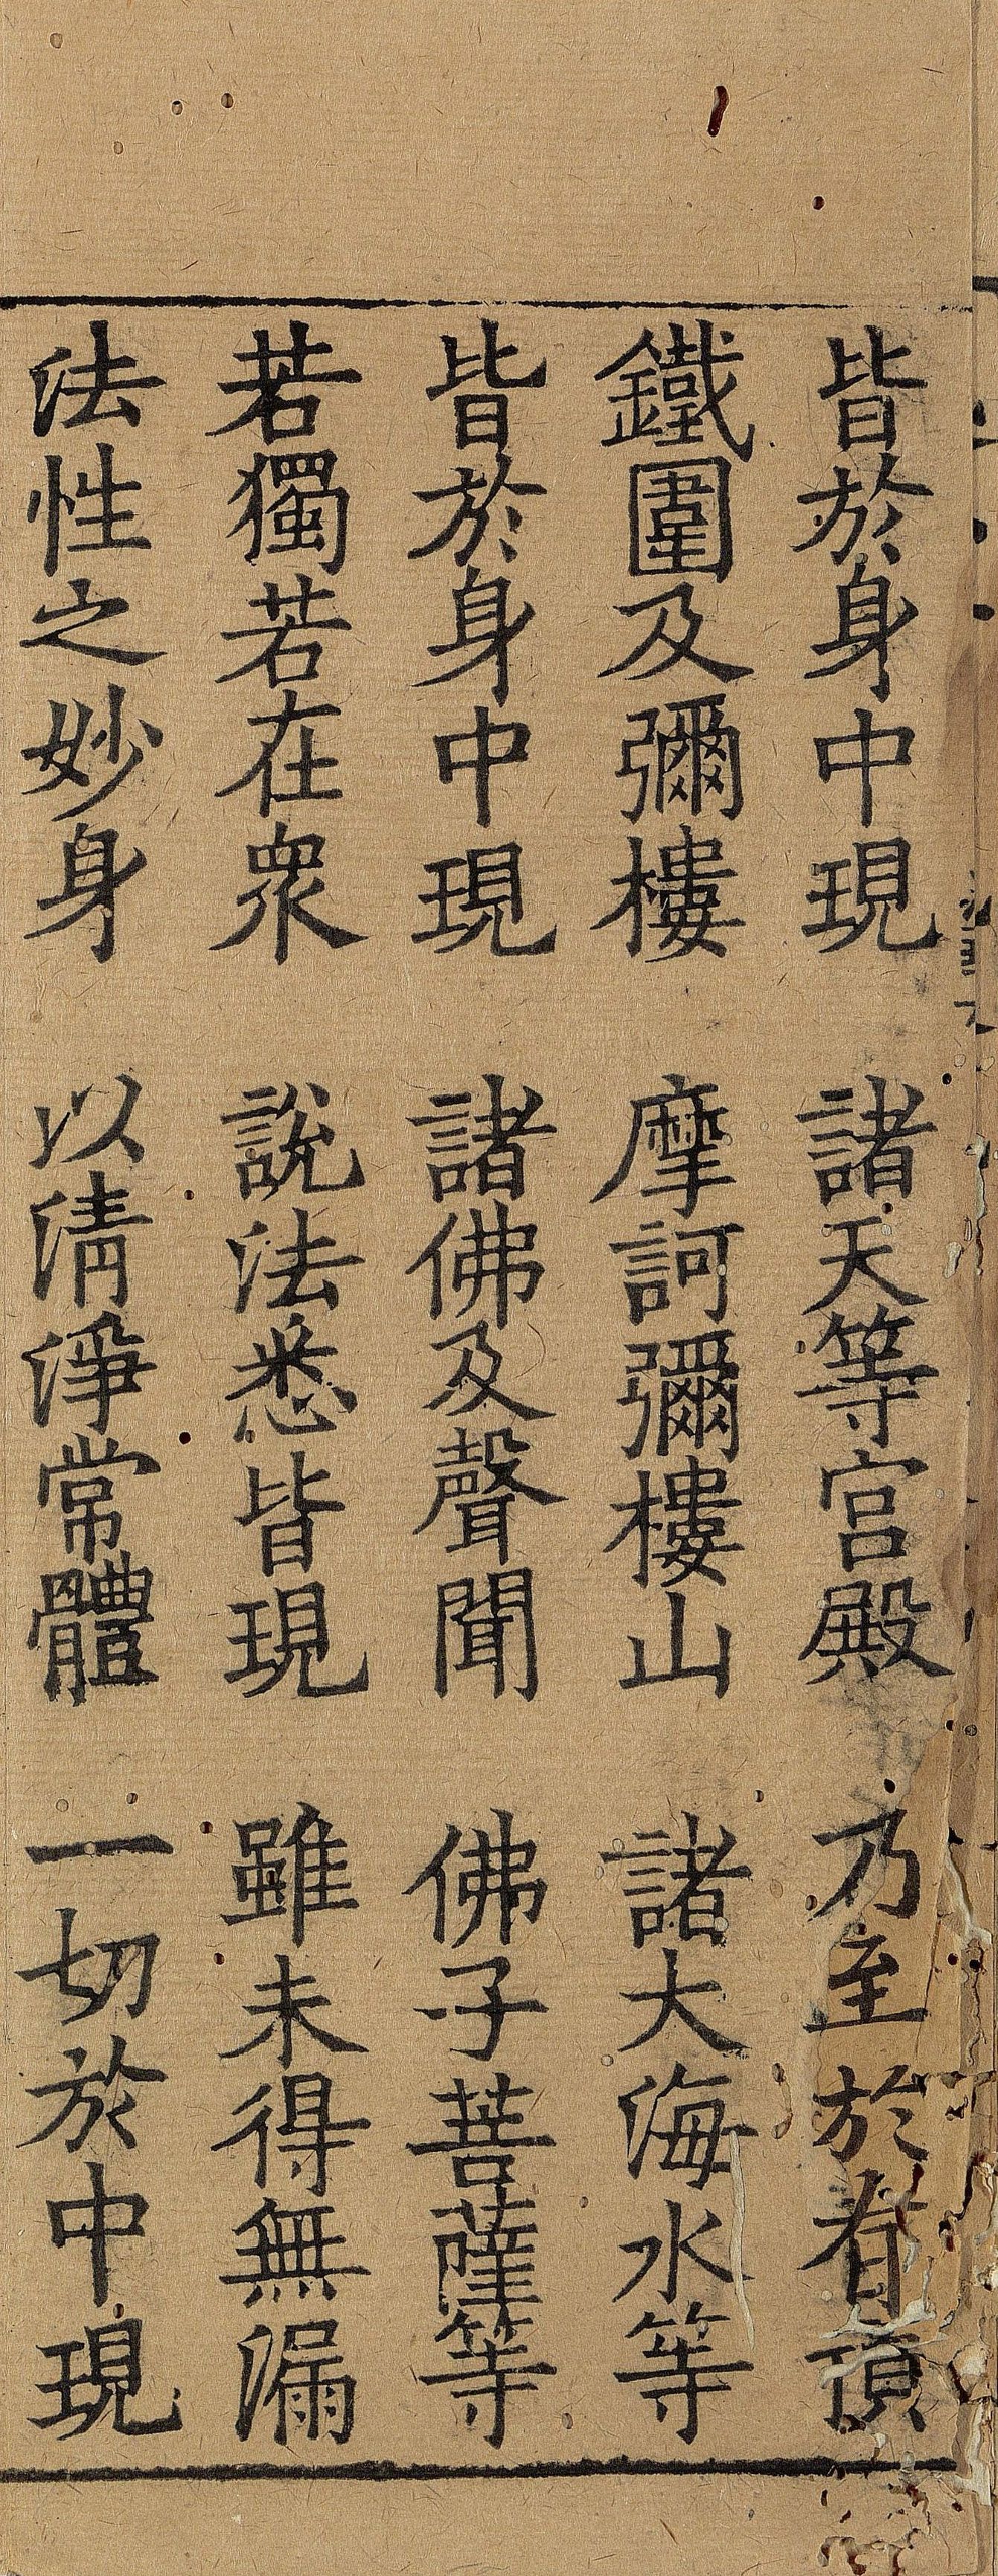 皆於身中現　諸天等宮殿　乃至於有頂
鐵圍及彌樓　摩訶彌樓山　諸大海水等
皆於身中現　諸佛及聲聞　佛子菩薩等
若獨若在衆　說法悉皆現　雖未得無漏
法性之妙身　以清淨常體　一切於中現